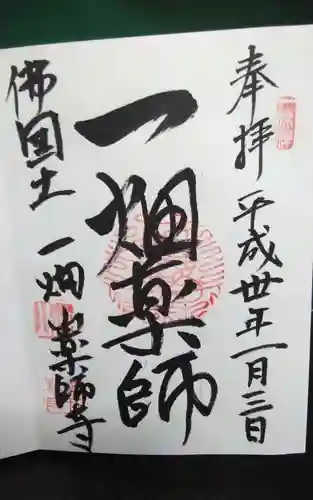 奉拝
平成卅年一月三日
一畑薬師
佛国土
一畑山薬師寺